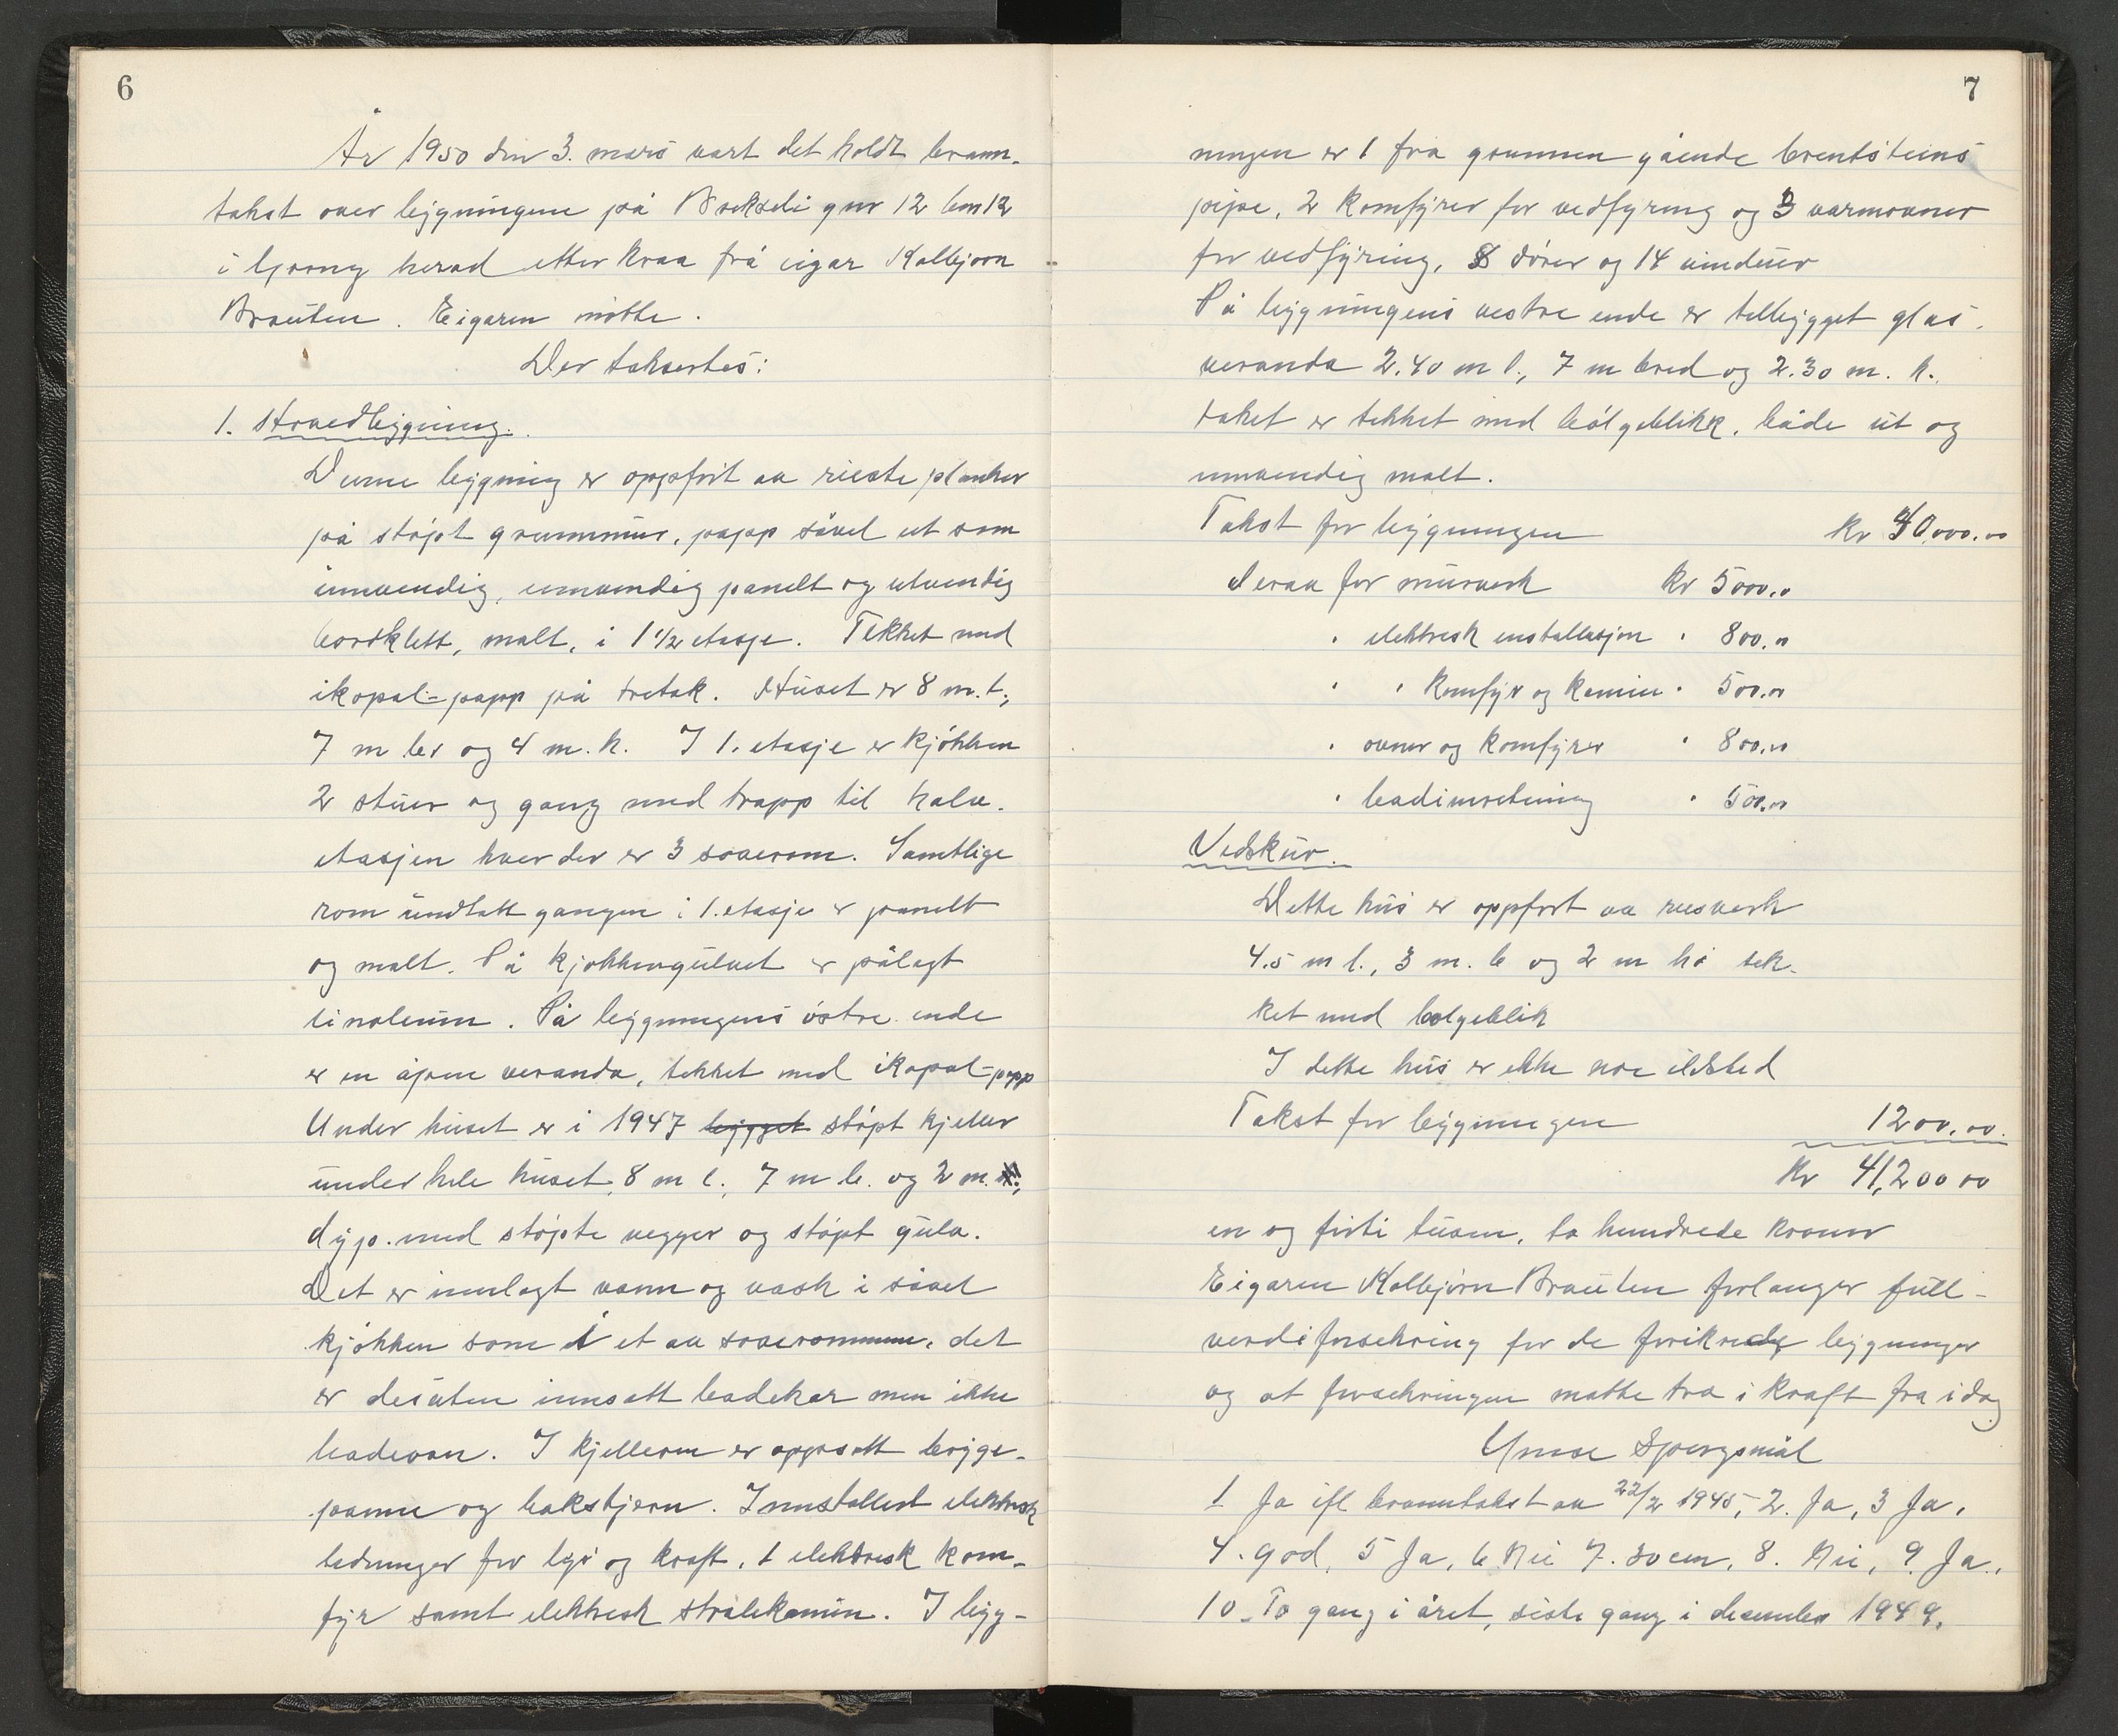 6
År 1950 den 3. mars vart det holdt brann-
takst over bygningene på Brekseli gnr 12 bnr 12
i Grong herad etter krav frå eigar Kolbjørn
Brauten. Eigaren møtte.
Der taksertes:
1. Hovedbygning.
Denne bygning er oppført av reiste planker
på støpt grunnmur, papp såvel ut som
innvendig, innvendig panelt og utvendig
bordklett, malt, i 1 1/2 etasje. Tekket med
ikopal-papp på tretak. Huset er 8 m. l.,
7 m br og 4 m. h. I 1. etasje er kjøkken
2 stuer og gang med trapp til halv-
etasjen hvor der er 3 soverom. Samtlige
rom undtatt gangen i 1. etasje er panelt
og malt. På kjøkkengulvet er pålagt
linoleum. På bygningens østre ende
er en åpen veranda, tekket med ikopal-papp
Under huset er i 1947 bygget støpt kjeller
under hele huset, 8 m l., 7 m b. og 2 m. h.,
dyp. med støpte vegger og støpt gulv.
Det er innlagt vann og vask i såvel
kjøkken som i et av soverommene, det
er desuten innsatt badekar men ikke
badeovn. I kjelleren er oppsatt brygge-
panne og bakstjern. Innstallert elektrisk
ledninger for lys og kraft, 1 elektrisk kom-
fyr samt elektrisk strålekamin. I byg-
7
ningen er 1 fra grunnen gående brentsteins
pipe, 2 komfyrer for vedfyring og 3 varmovner
for vedfyring, 8 dører og 14 vinduer
På bygningens vestre ende er tilbygget glas-
veranda 2.40 m l., 7 m bred og 2.30 m. h.
taket er tekket med bølgeblikk, både ut og
innvendig malt.
Takst for bygningen kr 40,000.00
Derav for murverk kr 5000.00
" elektrisk installasjon " 800.00
" " Komfyr og kamin " 500.00
" ovner og komfyrer " 800.00
" badinnretning " 500.00
Vedskur.
Dette hus er oppført av reisverk
4.5 m l., 3 m. b og 2 m hø tek-
ket med bølgeblik
I dette hus er ikke noe ildsted
Takst for bygningen 1200.00.
Kr 41,200 00
en og førti tusen, to hundrede kroner
Eigaren Kolbjørn Brauten forlanger full-
verdiforsekring for de forikrede bygninger
og at forsekringen måtte tre i kraft fra idag
Ymse Spørgsmål
1 Ja ifl branntakst av 22/2 1945, 2. Ja, 3 Ja,
4. god, 5 Ja, 6 Nei 7. 30 cm, 8. Nei, 9. Ja.,
10. To gang i året, siste gang i desember 1949.